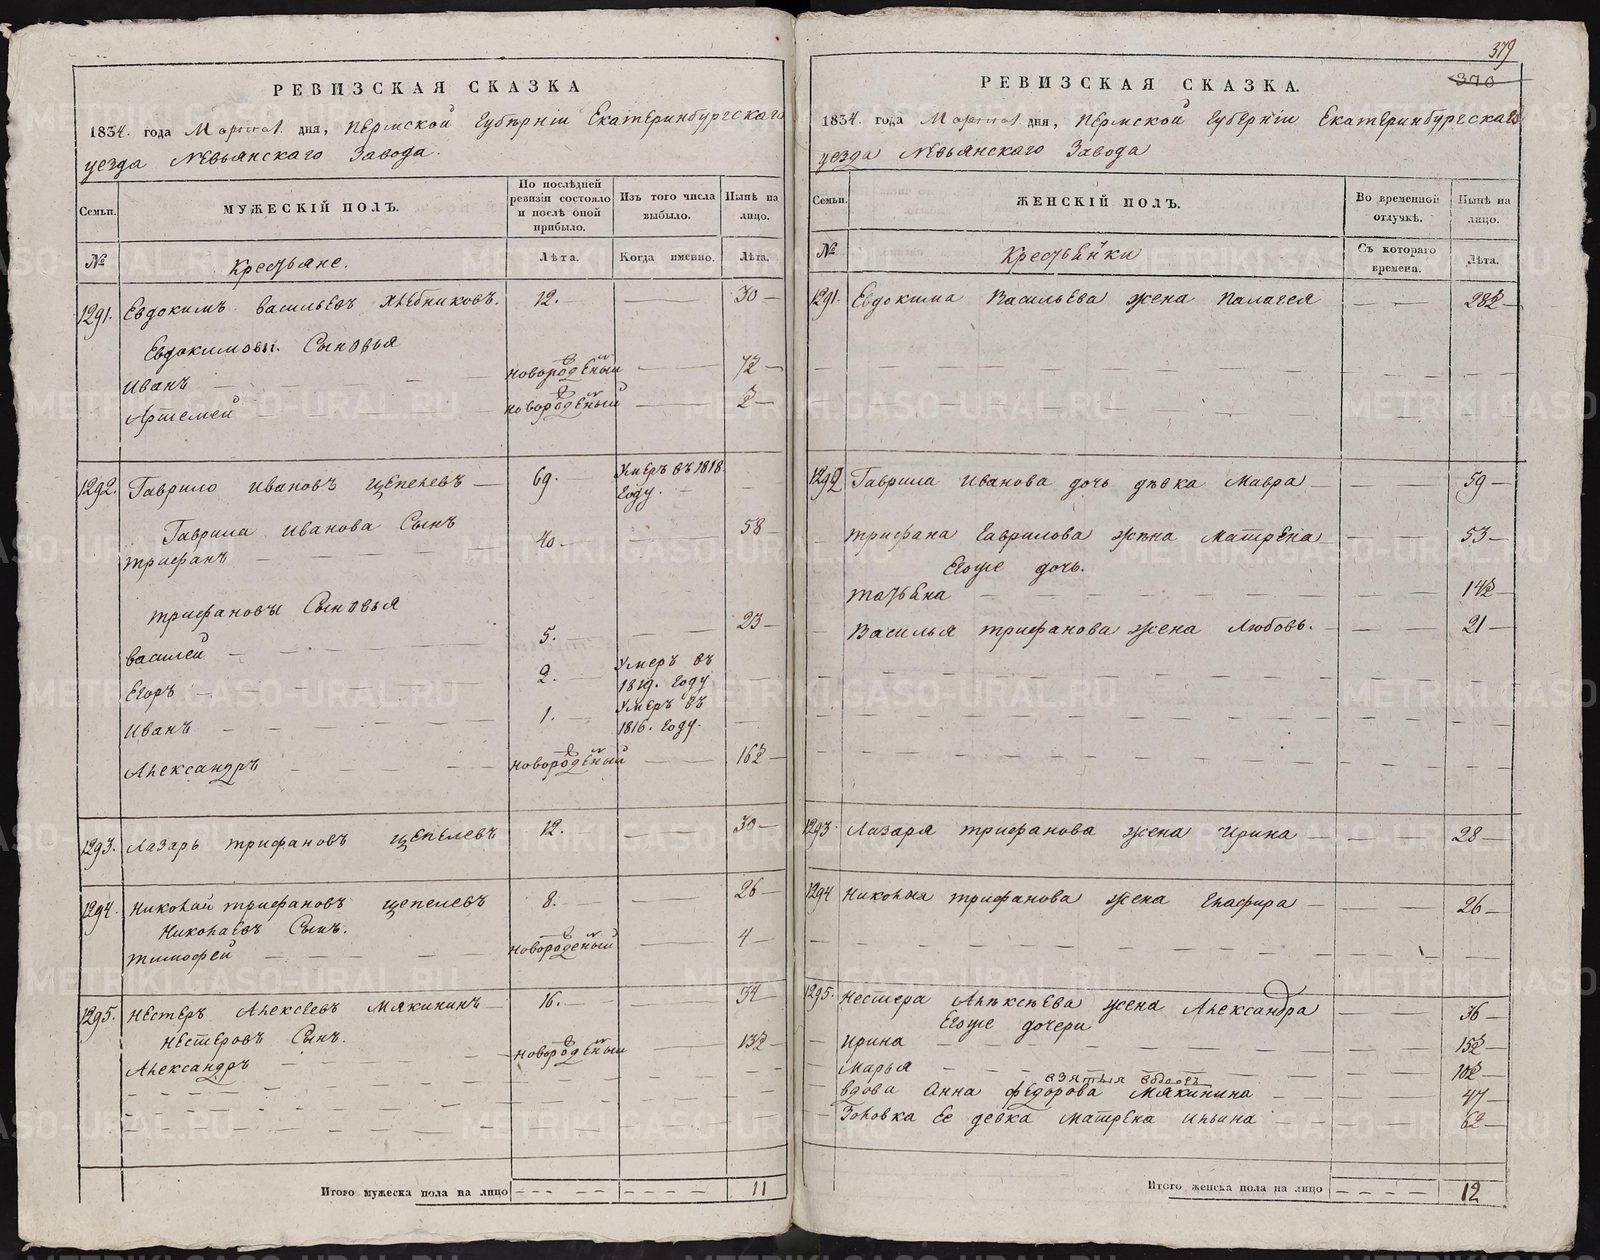 РЕВИЗСКАЯ СКАЗКА
1834. года Марта 1 дня, Пермской Губѣрніи Екатеринбургскаго
уезда Невьянскаго Завода.
Семьи. МУЖЕСКІЙ ПОЛЪ. По послѣдней ревизіи состояло и послѣ оной прибыло. Изъ того числа выбыло. Нынѣ на лицо.
№ Крестьяне. Лѣта. Когда именно. Лѣта.
1291. Евдокимъ Васильевъ Хлебниковъ. 12. 30
Евдокимовы Сыновья
Иванъ новорожденный 7½
Артемей новорожденный 2
1292. Гаврило Ивановъ Щепелевъ 69. Умеръ въ 1818. Году.
Гаврила Иванова Сынъ
Трифанъ 40. 58
Трифановы Сыновья
Василей 5. 23
Егоръ 2. Умеръ въ 1819. Году
Иванъ 1. Умеръ въ 1816. Году.
Александръ новорожденный 16½
1293. Лазарь Трифановъ Щепелевъ 12. 30
1294. Николай Трифановъ Щепелевъ 8. 26
Николаевъ Сынъ.
Тимофей новорожденный 4
1295. Нестеръ Алексеевъ Мякининъ 16. 34
Нестеровъ Сынъ.
Александръ новорожденный 13½
Итого мужеска пола на лицо 11
379
370
РЕВИЗСКАЯ СКАЗКА.
1834. года Марта 1 дня, Пермской Губерніи Екатеринбургскаго
уезда Невьянскаго Завода
Семьи. ЖЕНСКІЙ ПОЛЪ. Во временной отлучкѣ. Нынѣ на лицо.
№ Крестьянки Съ котораго времени. Лѣта.
1291. Евдокима Васильева жена Палагея 28½
1292 Гаврила Иванова дочь девка Мавра 59
Трифана Гаврилова жена Матрена 53
Егоже дочь.
Татьяна 14½
Василья Трифанова жена Любовь. 21
1293. Лазаря Трифанова жена Ирина 28
1294 Николая Трифанова жена Глафира 26
1295. Нестера Алексѣева жена Александра 36
Егоже дочери
Ирина 15½
Марья 10½
Вдова Анна Федорова Мякинина 47
Золовка Ее девка Матрена Ильина 62
Итого женска пола на лицо 12
METRIKI.GASO-URAL.RU